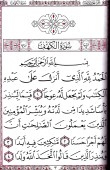 سُورَةُ الْكَهْفِ
بِسْمِ اللهِ الرَّحْمٰنِ الرَّحِيمِ
اَلْحَمْدُ لِلّٰهِ الَّذِى اَنْزَلَ عَلٰى عَبْدِهِ
الْكِتَابَ وَلَمْ يَجْعَلْ لَهُ عِوَجًا قَيِّمًا لِيُنْذِرَ
بَأْسًا شَدِيدًا مِنْ لَدُنْهُ وَيُبَشِّرَ الْمُؤْمِنِينَ
الَّذِينَ يَعْمَلُونَ الصَّالِحَاتِ اَنَّ
لَهُمْ اَجْرًا حَسَنًا مَاكِثِينَ فِيهِ
اَبَدًا وَيُنْذِرَ الَّذِينَ قَالُوا اتَّخَذَ اللهُ وَلَدًا